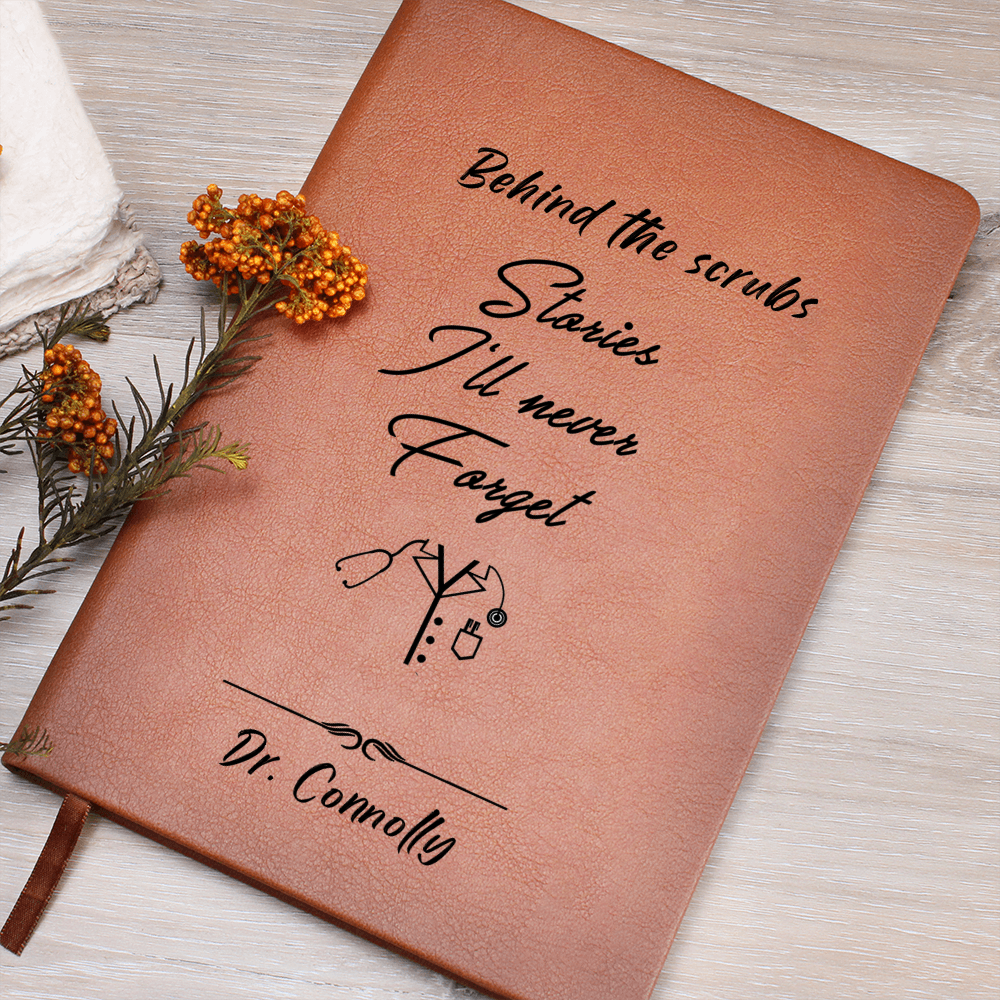 Behind the scrubs
Stories
I'll never
Forget
Dr. Connolly